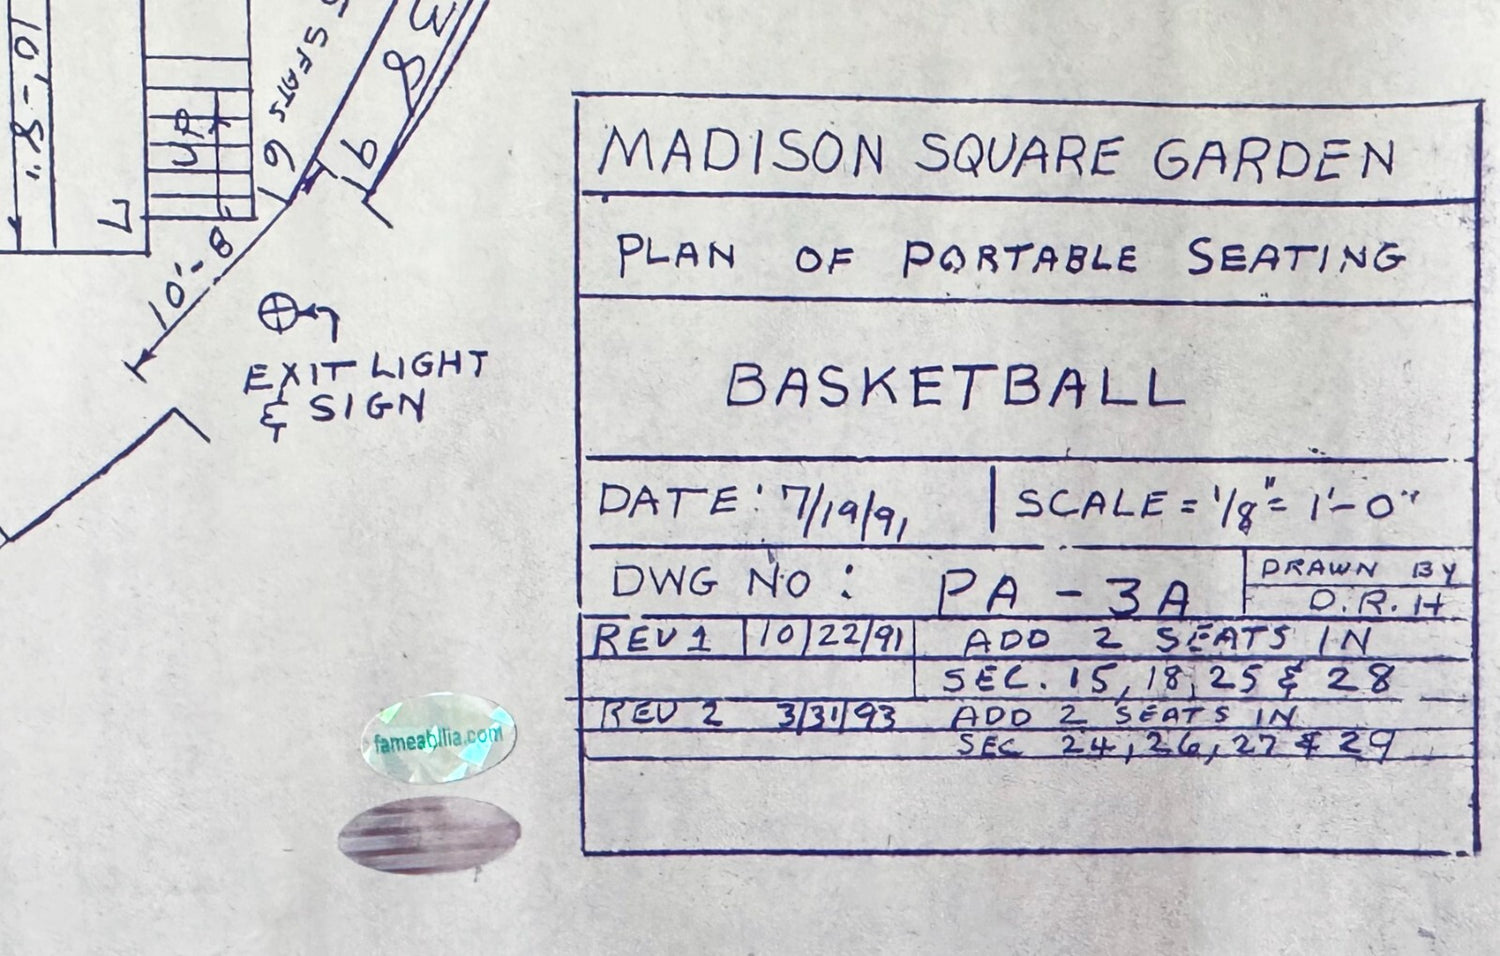 10'-8"
UP
SEATS
19
3
8
9
7
10'-8
EXIT LIGHT
& SIGN
MADISON SQUARE GARDEN
PLAN OF PORTABLE SEATING
BASKETBALL
DATE: 7/19/91
SCALE = 1/8" = 1'-0"
DWG NO: PA - 3A
DRAWN BY
D.R.H
REV 1 10/22/91 ADD 2 SEATS IN
SEC. 15, 18, 25 & 28
REV 2 3/31/93 ADD 2 SEATS IN
SEC 24, 26, 27 & 29
fameabilia.com